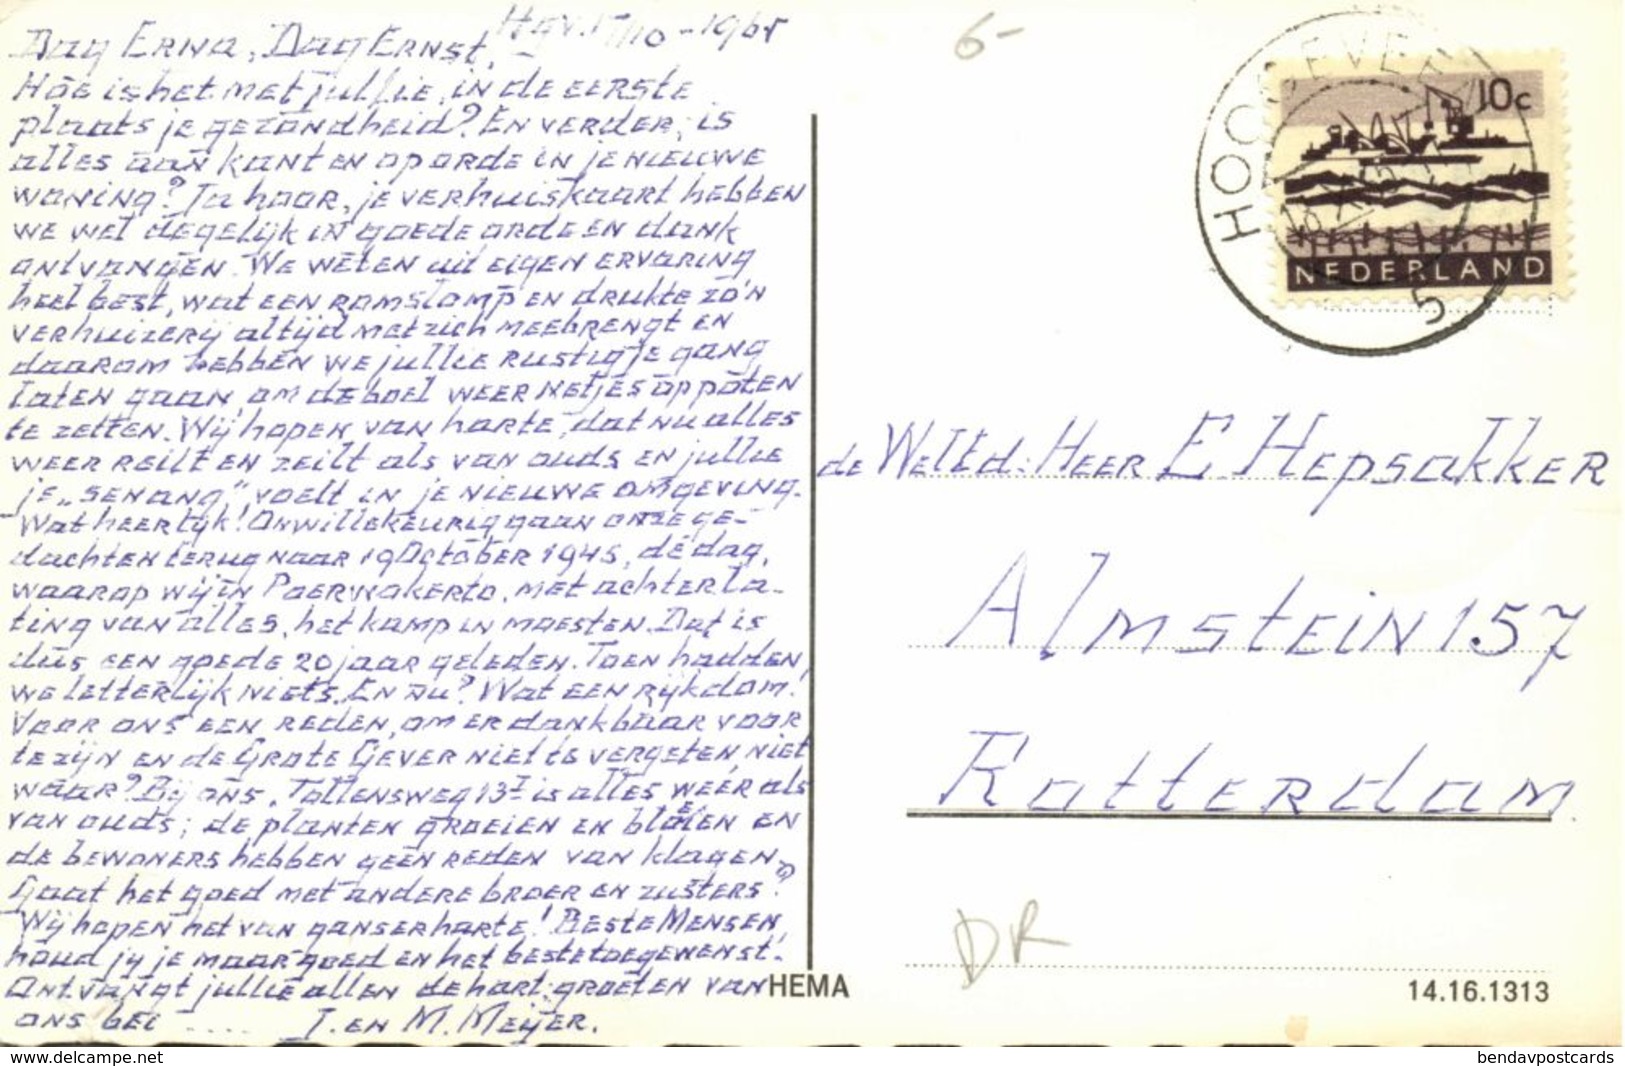 Hgv. 15/10-1965
Dag Erna, Dag Ernst,
Hoe is het met jullie, in de eerste
plaats je gezondheid? En verder, is
alles aan kant en op orde in je nieuwe
woning? Ja hoor, je verhuiskaart hebben
we wel degelijk in goede orde en dank
ontvangen. We weten uit eigen ervaring
heel best, wat een romslomp en drukte zo'n
verhuizerij altijd met zich meebrengt en
daarom hebben we jullie rustig je gang
laten gaan, om de boel weer netjes op poten
te zetten. Wij hopen van harte, dat nu alles
weer reilt en zeilt als van ouds en jullie
je „senang" voelt in je nieuwe omgeving.
Wat heerlijk! Onwillekeurig gaan onze ge-
dachten terug naar 19 October 1945, dé dag,
waarop wij in Poerwokerto, met achterla-
ting van alles, het kamp in moesten. Dat is
dus een goede 20 jaar geleden. Toen hadden
we letterlijk niets. En nu? Wat een rijkdom!
Voor ons een reden, om er dankbaar voor
te zijn en de Grote Gever niet te vergeten, niet
waar? Bij ons, Tollensweg 13 is alles weer als
van ouds; de planten groeien en bloeien en
de bewoners hebben geen reden van klagen.
Gaat het goed met andere broer en zusters?
Wij hopen het van ganser harte! Beste Mensen,
houd jij je maar goed en het beste toegewenst.
Ontvangt jullie allen de hart. groeten van
ons bei .... J. en M. Meijer.
HEMA
6-
HOOGEVEEN
5
10c
NEDERLAND
de WelEd. Heer E Hepsakker
Almstein 157
Rotterdam
DR
14.16.1313
www.delcampe.net
bendavpostcards